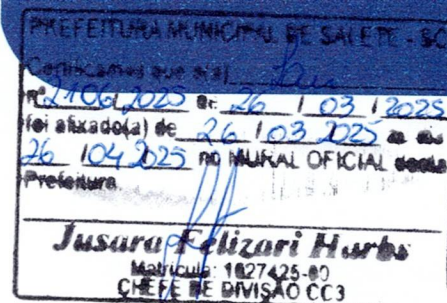 PREFEITURA MUNICIPAL DE SALETE - SC
Certificamos que o(a) Lei
Nº 2106/2025 de 26 / 03 / 2025
foi afixado(a) de 26 / 03 2025 ao dia
26 / 04 2025 no MURAL OFICIAL desta
Prefeitura
Jusara Felizari Harbs
Matrícula: 1827425-00
CHEFE DE DIVISÃO CC3